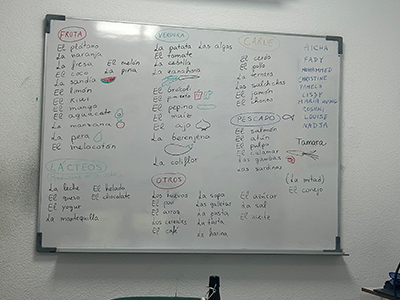 FRUTA
El plátano
La naranja
La fresa El melón
El coco La piña
La sandía
El limón
El kiwi
El mango
El aguacate
La manzana
La pera
El melocotón
LÁCTEOS
La leche El helado
El queso El chocolate
El yogur
La mantequilla
VERDURA
La patata Las algas
El tomate
La cebolla
La zanahoria
El brócoli
El pimiento
El pepino
El maíz
El ajo
La berenjena
La coliflor
OTROS
Los huevos La sopa El azúcar
El pan Las galletas La sal
El arroz La pasta El aceite
Los cereales La tarta
El café La harina
CARNE
El cerdo
El pollo
La ternera
Las salchichas
El jamón
El chorizo
PESCADO
El salmón
El atún
El pulpo
El calamar
Las gambas
Las sardinas
AICHA
FADY
MOHAMMED
CHRISTINE
PAMELA
LISSY
LOUISE
NADJA
Tamara
(La mitad)
El conejo